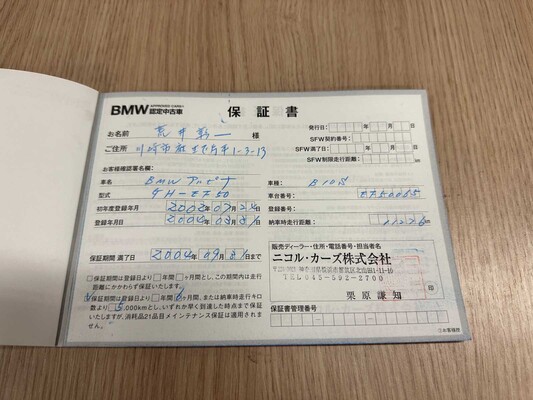 BMW APPROVED CARS 認定中古車 保証書
お名前 荒井彰一 様
発行日: 年 月 日
ご住所 川崎市
SFW契約番号:
SFW満了日: 年 月 日
SFW制限走行距離:
お客様確認署名欄:
車名 BMW アルピナ 車種: B10
型式 GH-
車台番号
初年度登録年月 2002年07月24日 登録番号:
登録年月日 2004年03月31日 納車時走行距離:
保証期間 満了日 2004年09月 日まで
販売ディーラー・住所・電話番号・担当者名
ニコル・カーズ株式会社
神奈川県横浜市都筑区北山田1-11-10
TEL 045-592-2700
栗原謙知
印
□保証期間は登録日より□年間□ヶ月間とし、この期間内は走行
距離にかかわらず保証いたします。
□保証期間は登録日より□年間6ヶ月間、または納車時走行キロ
数より5,000kmとし、いずれか早く到達した時点まで保証
いたしますが、消耗品21品目メインテナンス保証は適用されま
せん。
保証書管理番号
①お客様用